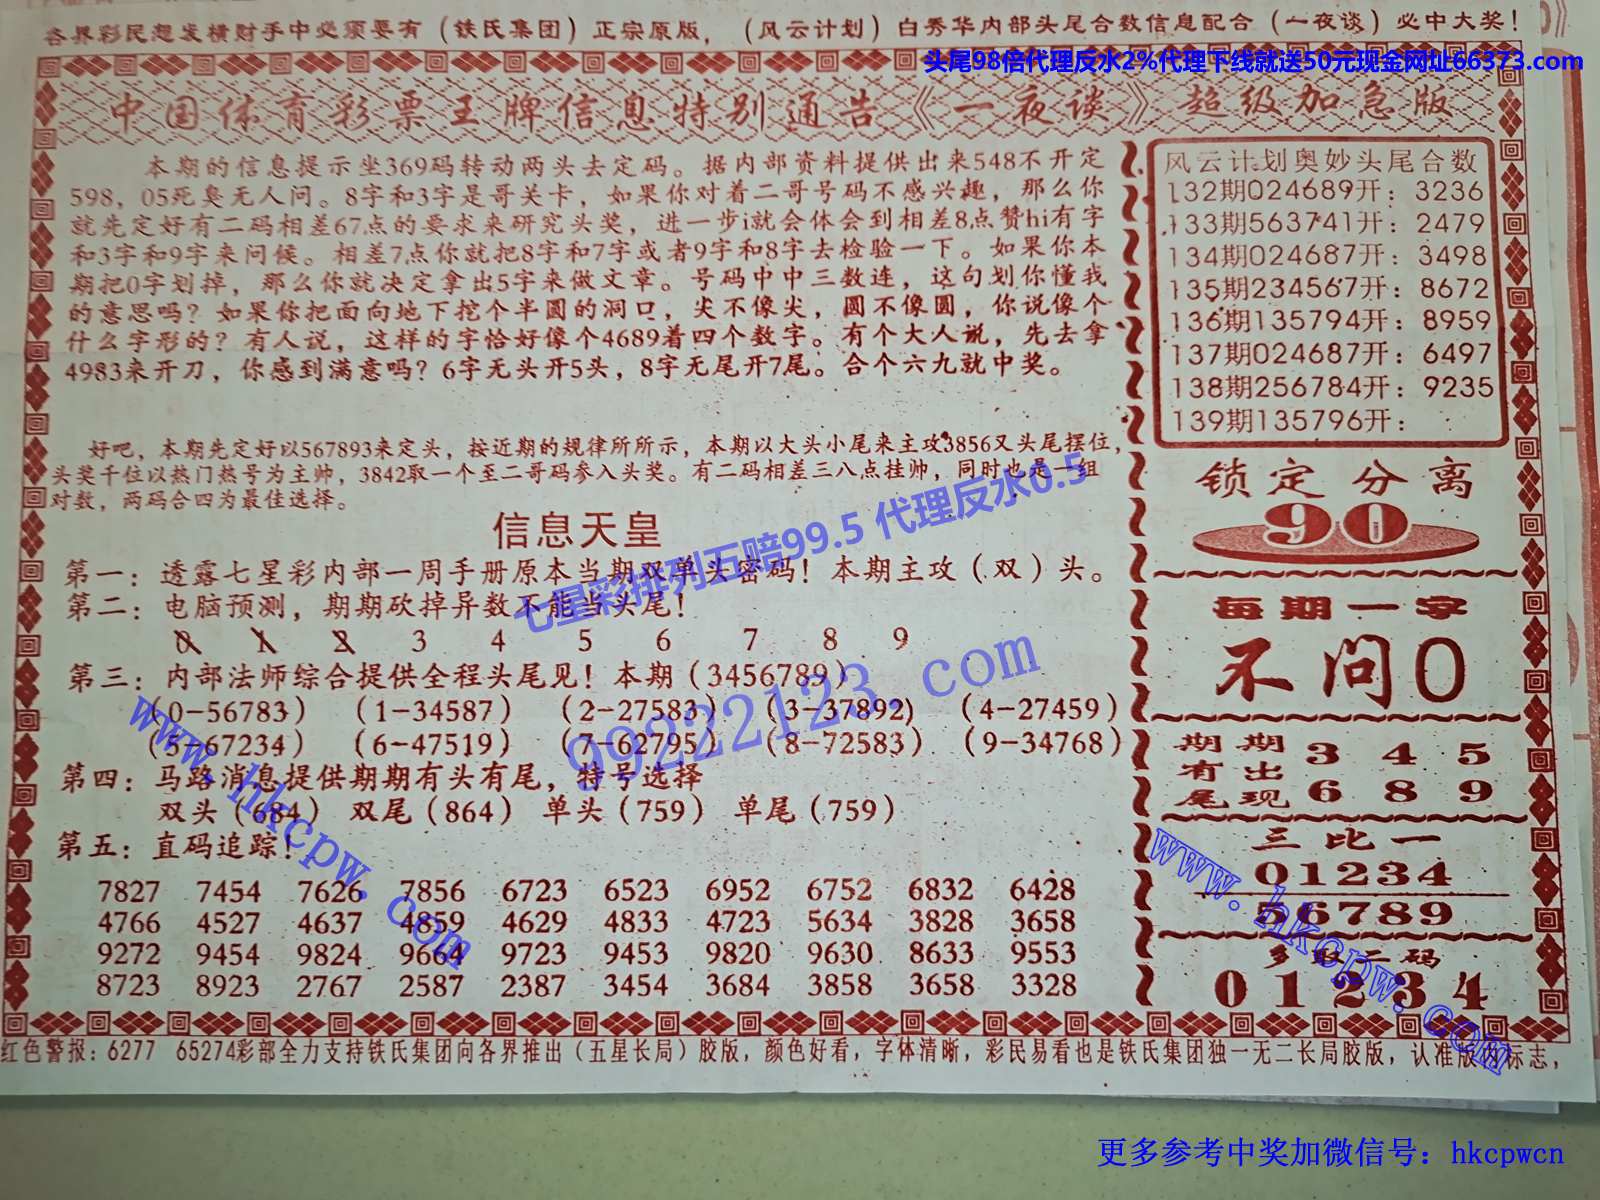 各界彩民想发横财手中必须要有（铁氏集团）正宗原版，（风云计划）白秀华内部头尾合数信息配合（一夜谈）必中大奖！
头尾98倍代理反水2%代理下线就送50元现金网址66373.com
中国体育彩票王牌信息特别通告《一夜谈》超级加急版
本期的信息提示坐369码转动两头去定码。据内部资料提供出来548不开定
598，05死臭无人问。8字和3字是哥关卡，如果你对着二哥号码不感兴趣，那么你
就先定好有二码相差67点的要求来研究头奖，进一步i就会体会到相差8点赞hi有字
和3字和9字来问候。相差7点你就把8字和7字或者9字和8字去检验一下。如果你本
期把0字划掉，那么你就决定拿出5字来做文章。号码中中三数连，这句划你懂我
的意思吗？如果你把面向地下挖个半圆的洞口，尖不像尖，圆不像圆，你说像个
什么字形的？有人说，这样的字恰好像个4689着四个数字。有个大人说，先去拿
4983来开刀，你感到满意吗？6字无头开5头，8字无尾开7尾。合个六九就中奖。
好吧，本期先定好以567893来定头，按近期的规律所所示，本期以大头小尾来主攻3856又头尾摆位，
头奖千位以热门热号为主帅，3842取一个至二哥码参入头奖。有二码相差三八点挂帅，同时也是一组
对数，两码合四为最佳选择。
信息天皇
第一：透露七星彩内部一周手册原本当期双单头密码！本期主攻（双）头。
第二：电脑预测，期期砍掉异数不能当头尾！
0 1 2 3 4 5 6 7 8 9
第三：内部法师综合提供全程头尾见！本期（3456789）
（0-56783）（1-34587）（2-27583）（3-37892）（4-27459）
（5-67234）（6-47519）（7-62795）（8-72583）（9-34768）
第四：马路消息提供期期有头有尾，特号选择
双头（684） 双尾（864） 单头（759） 单尾（759）
第五：直码追踪！
7827 7454 7626 7856 6723 6523 6952 6752 6832 6428
4766 4527 4637 4859 4629 4833 4723 5634 3828 3658
9272 9454 9824 9664 9723 9453 9820 9630 8633 9553
8723 8923 2767 2587 2387 3454 3684 3858 3658 3328
风云计划奥妙头尾合数
132期024689开：3236
133期563741开：2479
134期024687开：3498
135期234567开：8672
136期135794开：8959
137期024687开：6497
138期256784开：9235
139期135796开：
锁定分离
90
每期一字
不问0
期期 3 4 5
有出
尾现 6 8 9
三比一
01234
56789
多取二码
0 1 2 3 4
红色警报：6277 65274彩部全力支持铁氏集团向各界推出（五星长局）胶版，颜色好看，字体清晰，彩民易看也是铁氏集团独一无二长局胶版，认准版内标志，
七星彩排列五赔99.5 代理反水0.5
99222123.com
www.hkcpw.com
www.hkcpw.com
更多参考中奖加微信号：hkcpwcn